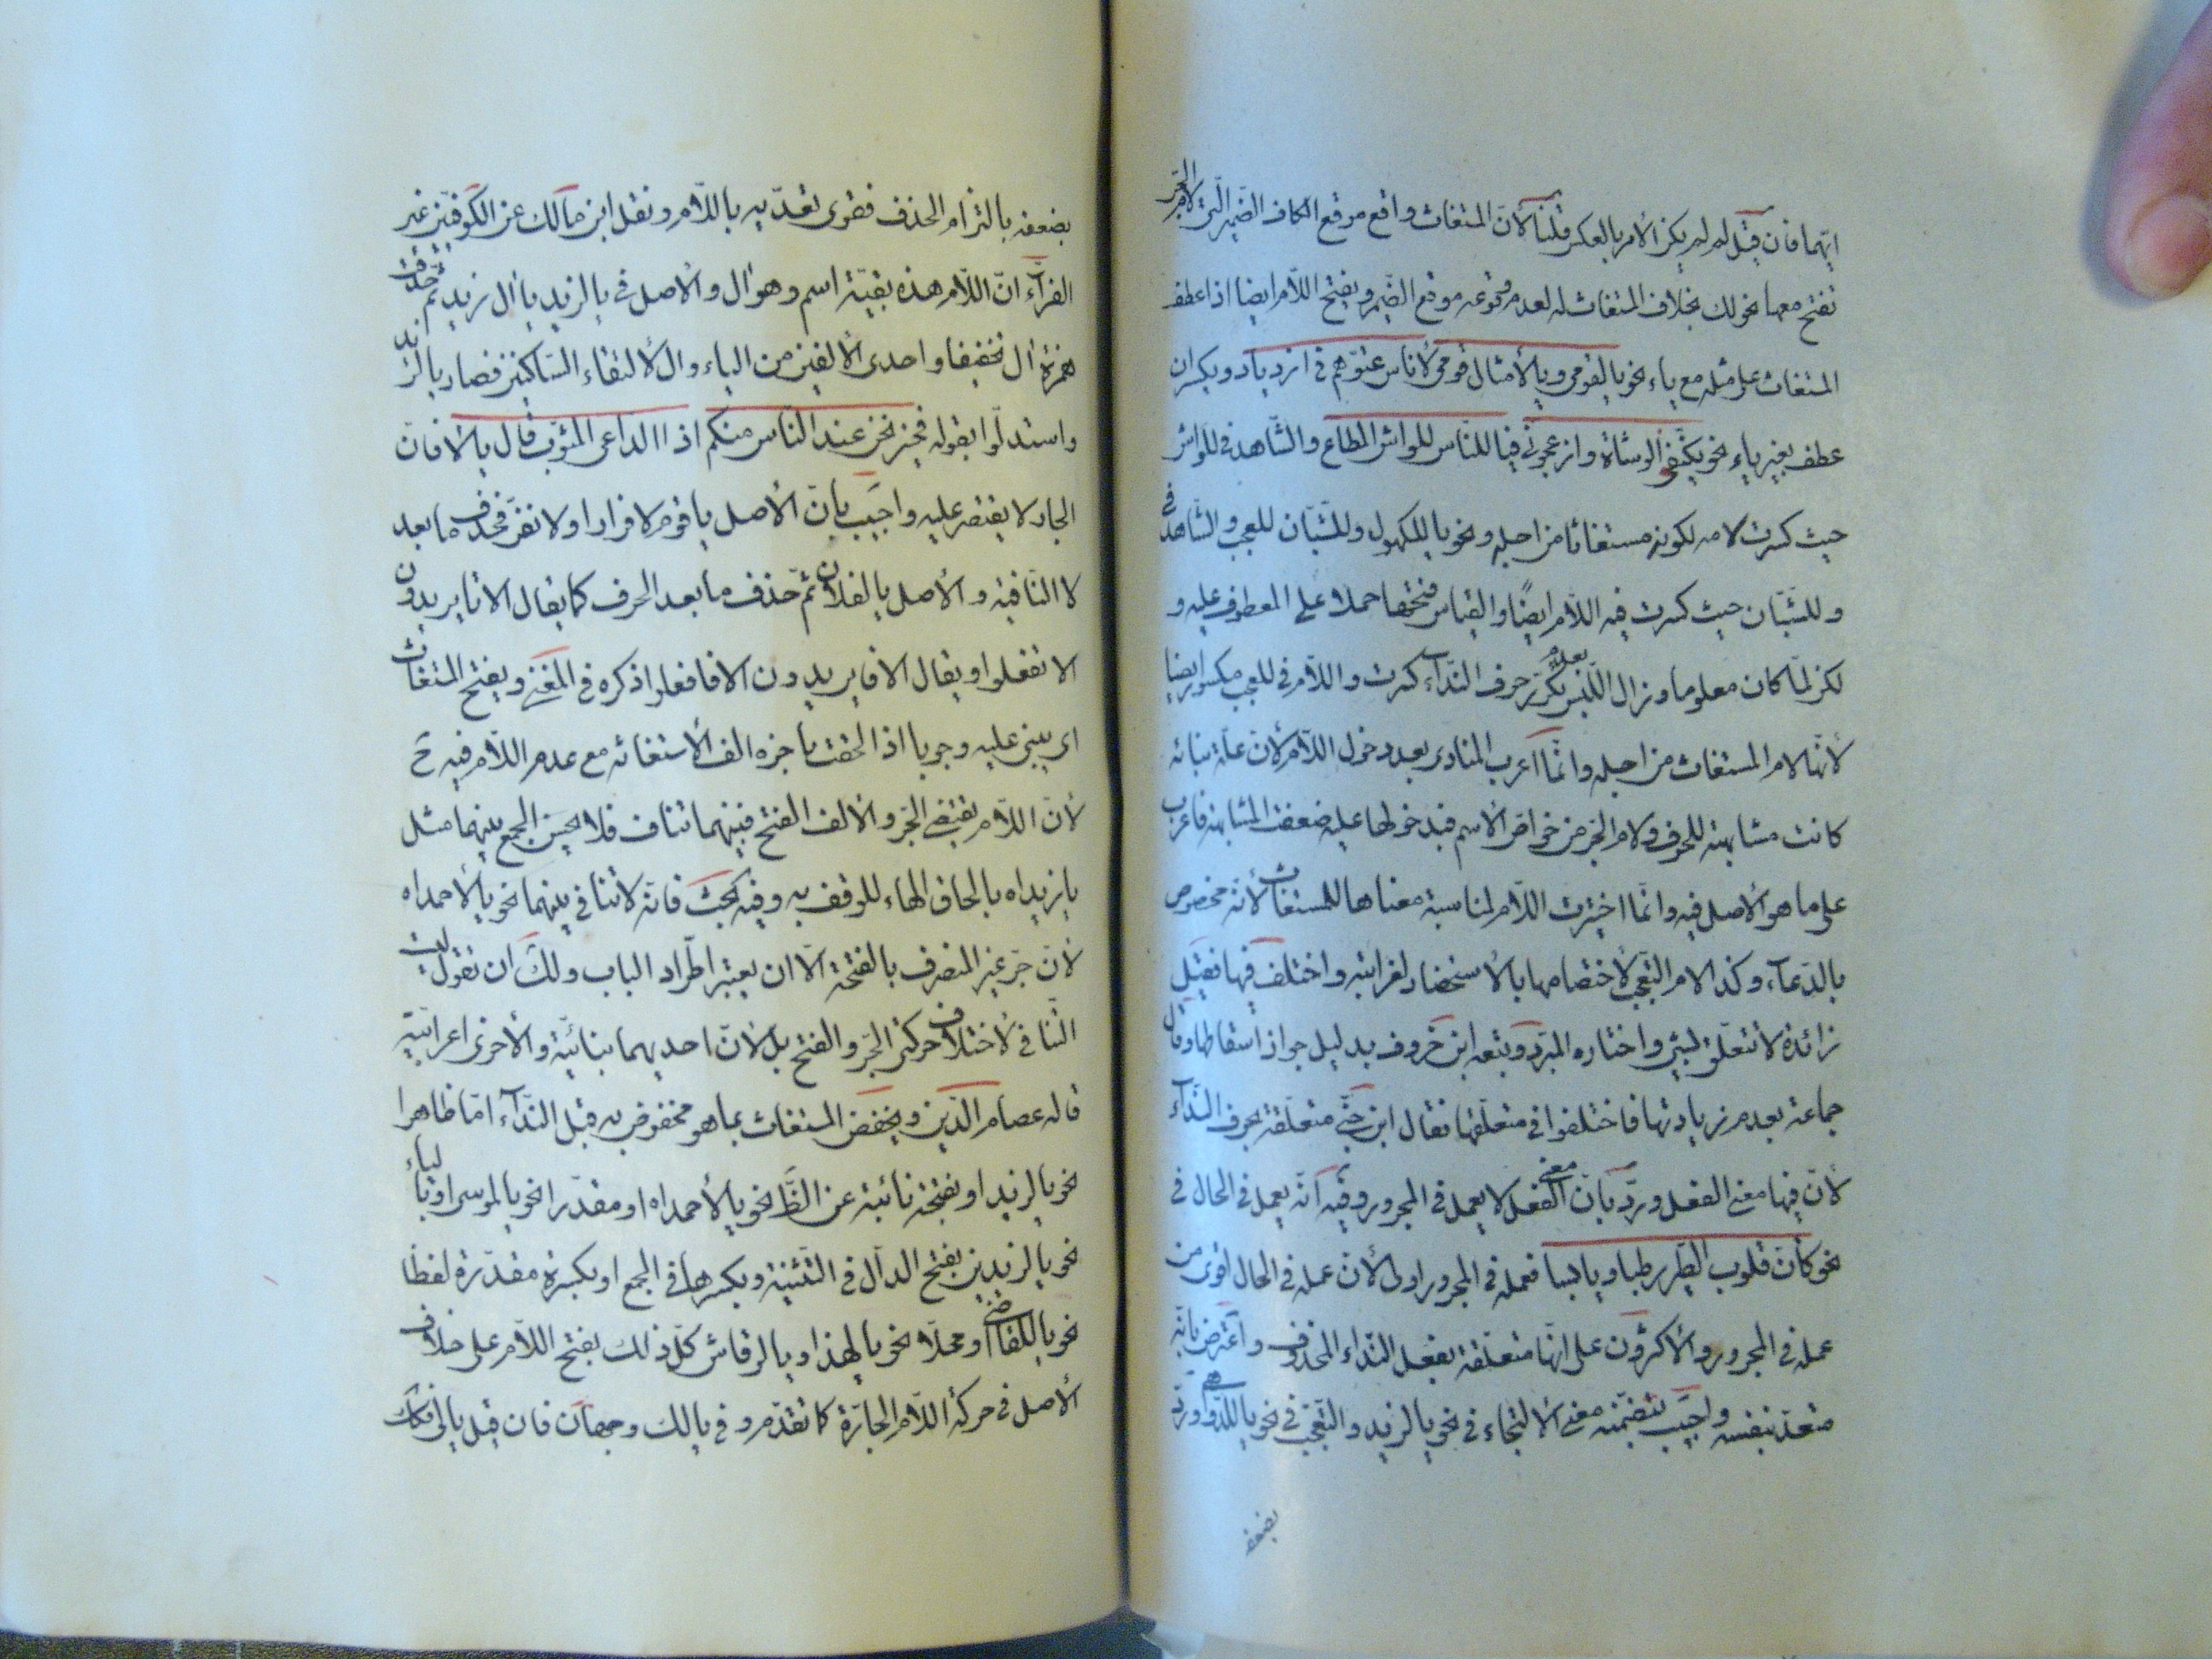 ايتهما فان قيل لم لم يكن الأمر بالعكس قلنا لأنّ المستغاث واقع موقع الكاف الضمير الّتى لام الجرّ
تفتح معها نحو لك بخلاف المستغاث له لعدم وقوعه موقع الضمير ويفتح اللّام ايضا اذا عطف
المستغاث على مثله مع ياء نحو يا لقومى ويا لأمثال قومى لأناس عتوّهم فى ازدياد ويكسر ان
عطف بغير ياء نحو تكنّفنى الوشاة وازعجونى فيا للنّاس للواشى المطاع والشّاهد فى للواشى
حيث كسرت لامه لكونه مستغاثا من اجله ونحو يا للكهول وللشّبّان للعجب والشّاهد فى
وللشّبّان حيث كسرت فيه اللّام ايضًا والقياس فتحها حملا على المعطوف عليه و
لكن لمّا كان معلوما وزال اللّبس بعدم تكرّر حرف النّدآء كسرت واللّام فى للعجب مكسور ايضا
لأنّها لام المستغاث من اجله وانّما اعرب المنادى بعد دخول اللّام لأنّ علّة بنائه
كانت مشابهته للحرف ولام الجرّ من خواصّ الأسم فبدخولها عليه ضعفت المشابهة فاعرب
على ما هو الأصل فيه وانّما اختيرت اللّام لمناسبة معناها للمستغاث لأنّه مخصوص
بالدّعآء وكذا لام التّعجّب لأختصاصها بالأستحضار لغرابته واختلف فيها فقيل
زائدة لا تتعلّق بشئ واختاره المبرّد وتبعه ابن خروف بدليل جواز اسقاطها وقال
جماعة بعدم زيادتها فاختلفوا فى متعلّقها فقال ابن جنّى متعلّقة بحرف النّدآء
لأنّ فيها معنى الفعل وردّ بأنّ معنى الفعل لا يعمل فى المجرور وفيه انّه يعمل فى الحال فى
نحو كأنّ قلوب الطّير رطبا ويابسا فعمله فى المجرور اولى لأنّ عمله فى الحال اقوى من
عمله فى المجرور والأكثرون على انّها متعلّقة بفعل النّداء المحذوف واعترض بانّه
متعدّ بنفسه واجيب بتضمّنه معنى الألتجاء فى نحو يا لزيد والتّعجّب فى نحو يا للدّواهى وردّ
بضعفه
بضعفه بالتزام الحذف فقوى تعدّيه باللّام ونقل ابن مالك عن الكوفيّين غير
الفرّآء انّ اللّام هذه بقيّة اسم وهو ال والأصل فى يا لزيد يا ال زيد ثمّ حذفت
همزة ال تخفيفا واحدى الألفين من الياء وال لألتقاء السّاكنين فصار يا لزيد
واستدلّوا بقوله فخير نحن عند النّاس منكم اذا الدّاعى المثوّب قال يا لا فانّ
الجار لا يقتصر عليه واجيب بأنّ الأصل يا قوم لا فرار او لا نفرّ فحذف ما بعد
لا النّافية والأصل يا لفلان ثمّ حذف ما بعد الحرف كما يقال الا تا يريدون
الا تفعلوا ويقال الا فا يريدون الا فافعلوا ذكره فى المغنى ويفتح المستغاث
اى يبنى عليه وجوبا اذا الحقت بآخره الف الأستغاثة مع عدم اللّام فيه ح
لأنّ اللّام يقتضى الجرّ والألف الفتح فبينهما تناف فلا يحسن الجمع بينهما مثل
يا زيداه بالحاق الهاء للوقف به وفيه بحث فانّه لا تنافى بينهما نحو يا لأحمداه
لأنّ جرّ غير المنصرف بالفتحة الّا ان يعتبر اطّراد الباب ولك ان تقول ليث
التّنافى لأختلاف حركتى الجرّ والفتح بل لأنّ احديهما بنائيّة والأخرى اعرابيّة
قاله عصام الدّين ويخفض المستغاث بما هو مخفوض به قبل النّدآء امّا ظاهرا
نحو يا لزيد او بفتحة نائبة عن الظّ نحو يا لأحمداه او مقدّرا نحو يا لموسى او بالياء
نحو يا لزيدين بفتح الدّال فى التّثنية وبكسرها فى الجمع او بكسرة مقدّرة لفظا
نحو يا للقاضى او محلّا نحو يا لهذا ويا لرقاش كلّ ذلك بفتح اللّام على خلاف
الأصل فى حركة اللّام الجارّة كما تقدّم وفى يا لك وجهان فان قيل يا لى فكك